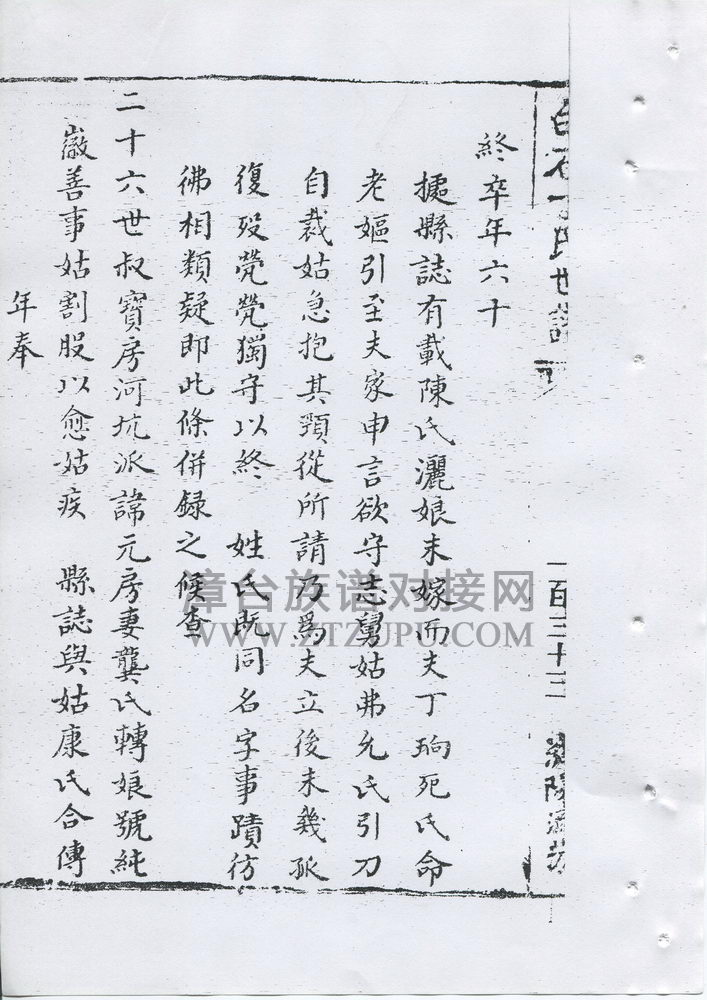 白石丁氏世譜
一百三十三
終卒年六十
據縣誌有載陳氏灑娘未嫁而夫丁珦死氏命
老嫗引至夫家申言欲守志舅姑弗允氏引刀
自裁姑急抱其頸從所請乃為夫立後未幾孤
復歿煢煢獨守以終 姓氏既同名字事蹟彷
彿相類疑即此條併録之候查
二十六世叔寶房河坑派諱元房妻龔氏轉娘號純
嶶善事姑割股以愈姑疾 縣誌與姑康氏合傳
年奉
漳台族谱对接网
WWW.ZTZUPU.COM